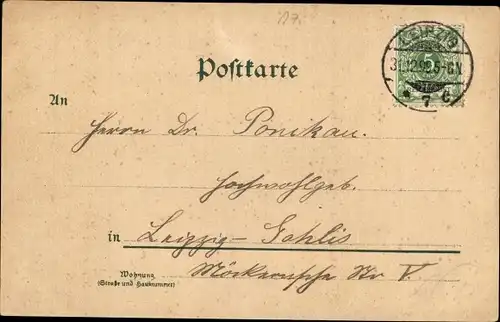 17.
LEIPZIG
5
31.12.98.5-6N
* 7 c
Postkarte
An
Herrn Dr. Ponikau.
Hochwohlgeb.
in Leipzig-Gohlis
Wohnung
(Straße und Hausnummer)
Möckernsche Str V.